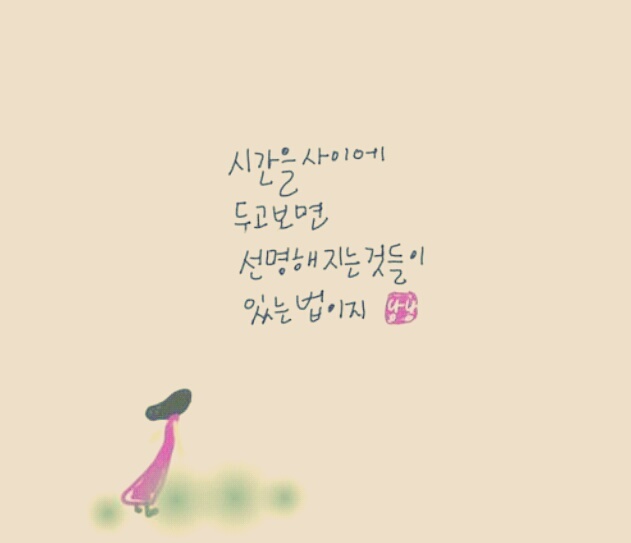 시간을 사이에
두고보면
선명해 지는 것들이
있는 법이지